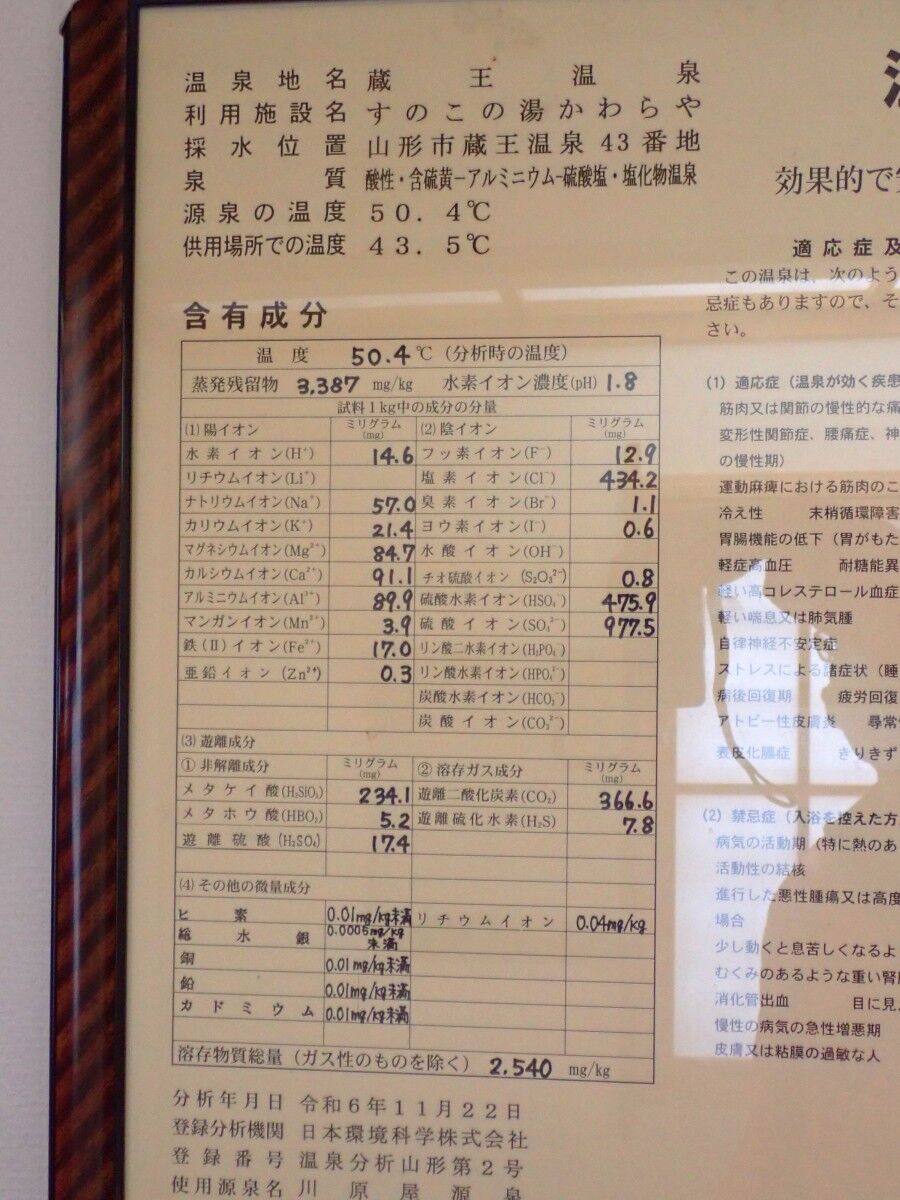 温泉地名 蔵王温泉
利用施設名 すのこの湯かわらや
採水位置 山形市蔵王温泉43番地
泉質 酸性・含硫黄-アルミニウム-硫酸塩・塩化物温泉
源泉の温度 50.4℃
供用場所での温度 43.5℃
効果的で
含有成分
温度 50.4℃(分析時の温度)
蒸発残留物 3,387 mg/kg 水素イオン濃度(pH) 1.8
試料1kg中の成分の分量
(1)陽イオン ミリグラム(mg) (2)陰イオン ミリグラム(mg)
水素イオン(H⁺) 14.6 フッ素イオン(F⁻) 12.9
リチウムイオン(Li⁺) 塩素イオン(Cl⁻) 434.2
ナトリウムイオン(Na⁺) 57.0 臭素イオン(Br⁻) 1.1
カリウムイオン(K⁺) 21.4 ヨウ素イオン(I⁻) 0.6
マグネシウムイオン(Mg²⁺) 84.7 水酸イオン(OH⁻)
カルシウムイオン(Ca²⁺) 91.1 チオ硫酸イオン(S₂O₃²⁻) 0.8
アルミニウムイオン(Al³⁺) 89.9 硫酸水素イオン(HSO₄⁻) 475.9
マンガンイオン(Mn²⁺) 3.9 硫酸イオン(SO₄²⁻) 977.5
鉄(II)イオン(Fe²⁺) 17.0 リン酸二水素イオン(H₂PO₄⁻)
亜鉛イオン(Zn²⁺) 0.3 リン酸水素イオン(HPO₄²⁻)
炭酸水素イオン(HCO₃⁻)
炭酸イオン(CO₃²⁻)
(3)遊離成分
①非解離成分 ミリグラム(mg) ②溶存ガス成分 ミリグラム(mg)
メタケイ酸(H₂SiO₃) 234.1 遊離二酸化炭素(CO₂) 366.6
メタホウ酸(HBO₂) 5.2 遊離硫化水素(H₂S) 7.8
遊離硫酸(H₂SO₄) 17.4
(4)その他の微量成分
ヒ素 0.01mg/kg未満 リチウムイオン 0.04mg/kg
総水銀 0.0005mg/kg未満
銅 0.01mg/kg未満
鉛 0.01mg/kg未満
カドミウム 0.01mg/kg未満
溶存物質総量(ガス性のものを除く) 2.540 mg/kg
分析年月日 令和6年11月22日
登録分析機関 日本環境科学株式会社
登録番号 温泉分析山形第2号
使用源泉名 川原屋源泉
適応症及
この温泉は、次のよう
忌症もありますので、そ
さい。
(1) 適応症(温泉が効く疾患
筋肉又は関節の慢性的な痛
変形性関節症、腰痛症、神
の慢性期)
運動麻痺における筋肉のこ
冷え性 末梢循環障害
胃腸機能の低下(胃がもた
軽症高血圧 耐糖能異
軽い高コレステロール血症
軽い喘息又は肺気腫
自律神経不安定症
ストレスによる諸症状(睡
病後回復期 疲労回復
アトピー性皮膚炎 尋常
表皮化膿症 きりきず
(2) 禁忌症(入浴を控えた方
病気の活動期(特に熱のあ
活動性の結核
進行した悪性腫瘍又は高度
場合
少し動くと息苦しくなるよ
むくみのあるような重い腎
消化管出血 目に見
慢性の病気の急性増悪期
皮膚又は粘膜の過敏な人